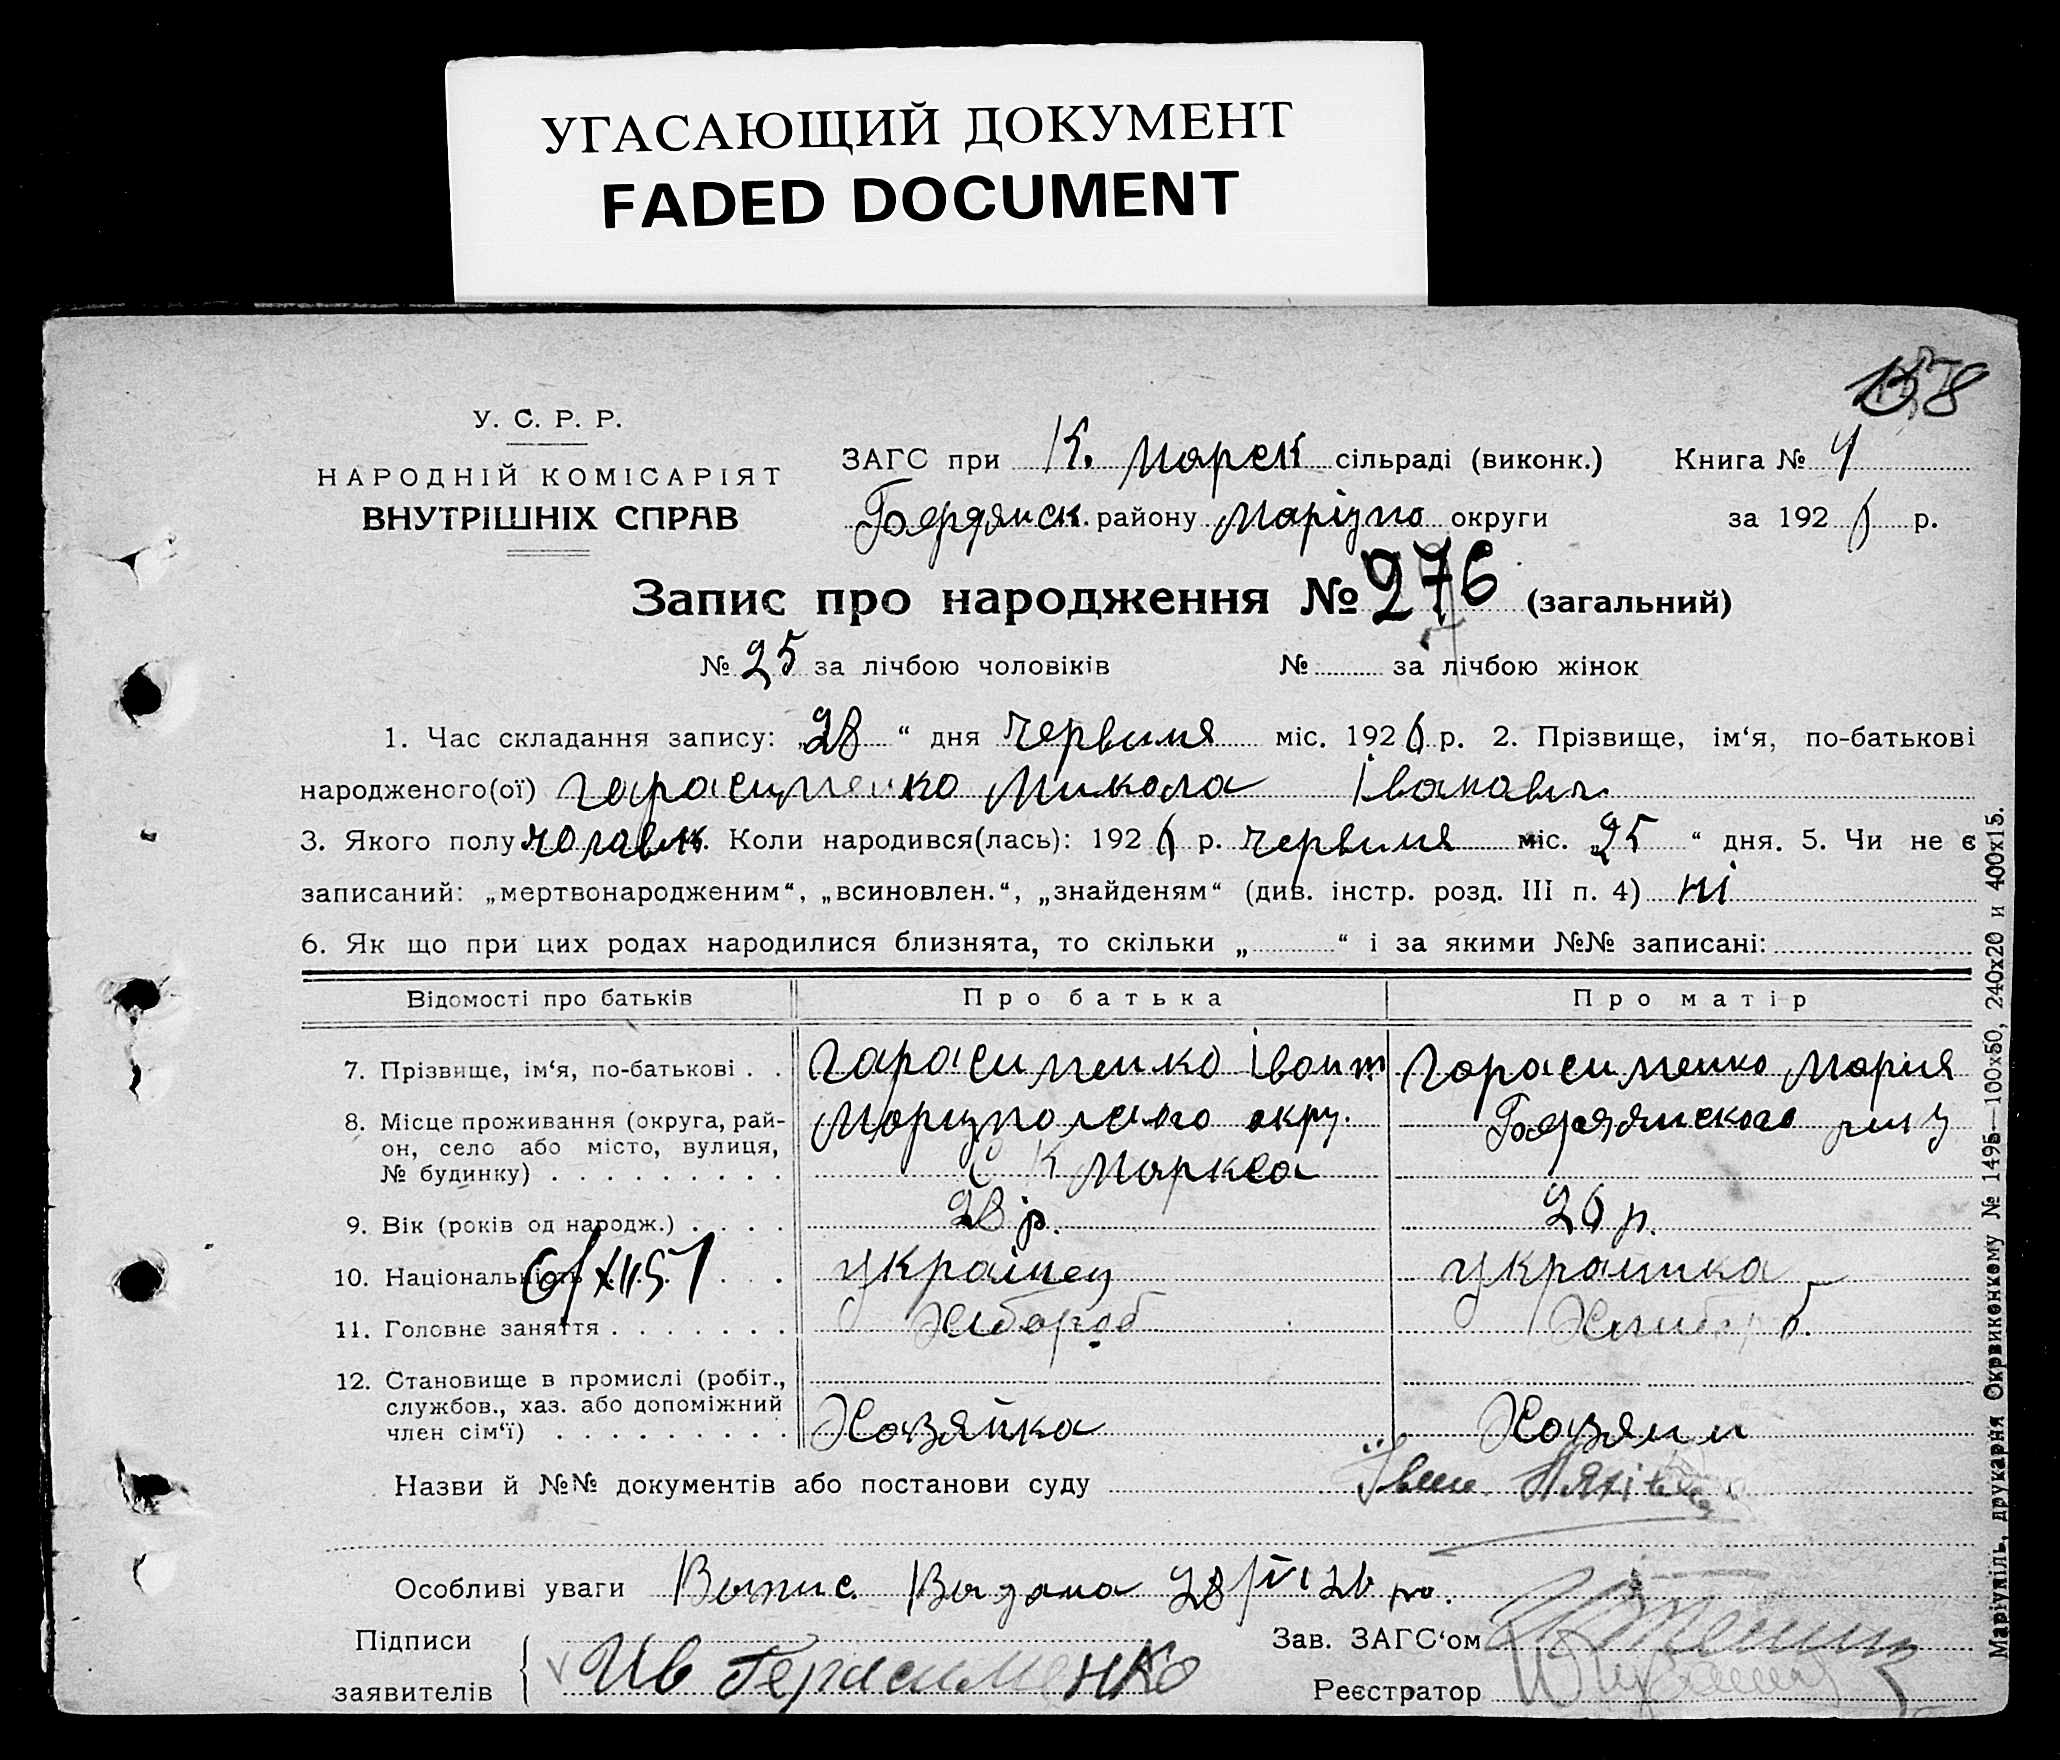 УГАСАЮЩИЙ ДОКУМЕНТ
FADED DOCUMENT
158
У. С. Р. Р.
НАРОДНІЙ КОМІСАРІЯТ
ВНУТРІШНІХ СПРАВ
ЗАГС при К. Марск сільраді (виконк.) Книга № 4
Бердянск. району Маріупо округи за 1926 р.
Запис про народження № 276 (загальний)
№ 25 за лічбою чоловіків № за лічбою жінок
1. Час складання запису: „28“ дня червиня міс. 1926 р. 2. Прізвище, ім‘я, по-батькові
народженого(ої) Гарасименко Микола Іванавич
3. Якого полу чолавік. Коли народився(лась): 1926 р. червиня міс. „25“ дня. 5. Чи не є
записаний: „мертвонародженим“, „всиновлен.“, „знайденям“ (див. інстр. розд. III п. 4) ні
6. Як що при цих родах народилися близнята, то скільки „ “ і за якими №№ записані:
Відомості про батьків Про батька Про матір
7. Прізвище, ім‘я, по-батькові . . Гарасименко Іван Гарасименко Мария
8. Місце проживання (округа, рай-
он, село або місто, вулиця,
№ будинку) . . . . . . . . .
окру. Бердянского
С К Маркса
9. Вік (років од народж.) . . . . 28 р. 26 р.
10. Національність . . . украінец украинка
6/XII 51
11. Головне заняття . . . . . . . Хлбороб
12. Становище в промислі (робіт.,
службов., хаз. або допоміжний
член сім‘ї) . . . . . . . . . Хазяйка Хазяин
Назви й №№ документів або постанови суду
Особливі уваги Випис Видана 28/VI 26 ро.
Підписи
заявителів Ив Герасименко
Зав. ЗАГС‘ом
Реєстратор
Маріупіль, друкарня Окрвиконкому № 1495—100х50, 240х20 и 400х15.